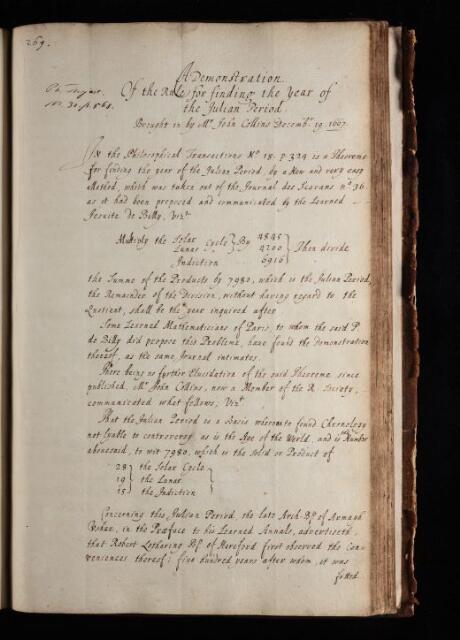 269.
Ph. Trans.
N. 30. p. 568.
A Demonstration
Of the Rule for finding the Year of
the Julian Period.
Brought in by Mr. John Collins Decemb. 19. 1667.
In the Philosophical Transactions No 18. p. 324 is a Theoreme
for finding the year of the Julian Period, by a New and very easy
Method, which was taken out of the Journal des Scavans no 36.
as it had been proposed and communicated by the Learned
Jesuite de Billy, Vizt
Multiply the Solar } Cycle } By 4845 } Then divide
Lunar 4200
Indiction 6916
the Summe of the Products by 7980, which is the Julian Period,
the Remainder of the Division, without having regard to the
Quotient, shall be the year inquired after.
Some Learned Mathematicians of Paris, to whom the said P.
de Billy did propose this Probleme, have found the demonstration
thereof, as the same Journal intimates.
There being no further Elucidation of the said Theoreme since
published, Mr John Collins, now a Member of the R. Society,
communicated what follows, Vizt
That the Julian Period is a Basis whereon to found Chronology
not lyable to controversy, as is the Age of the World, and is the Number
abovesaid, to wit 7980, which is the Solid or Product of
28 } the Solar Cycle
19 } the Lunar
15 } the Indiction
Concerning this Julian Period, the late Arch-Bp of Armagh
Usher, in the Preface to his Learned Annals, advertiseth,
that Robert Lotharing Bp of Hereford first observed the Con-
veniences thereof; five hundred years after whom, it was
fitted